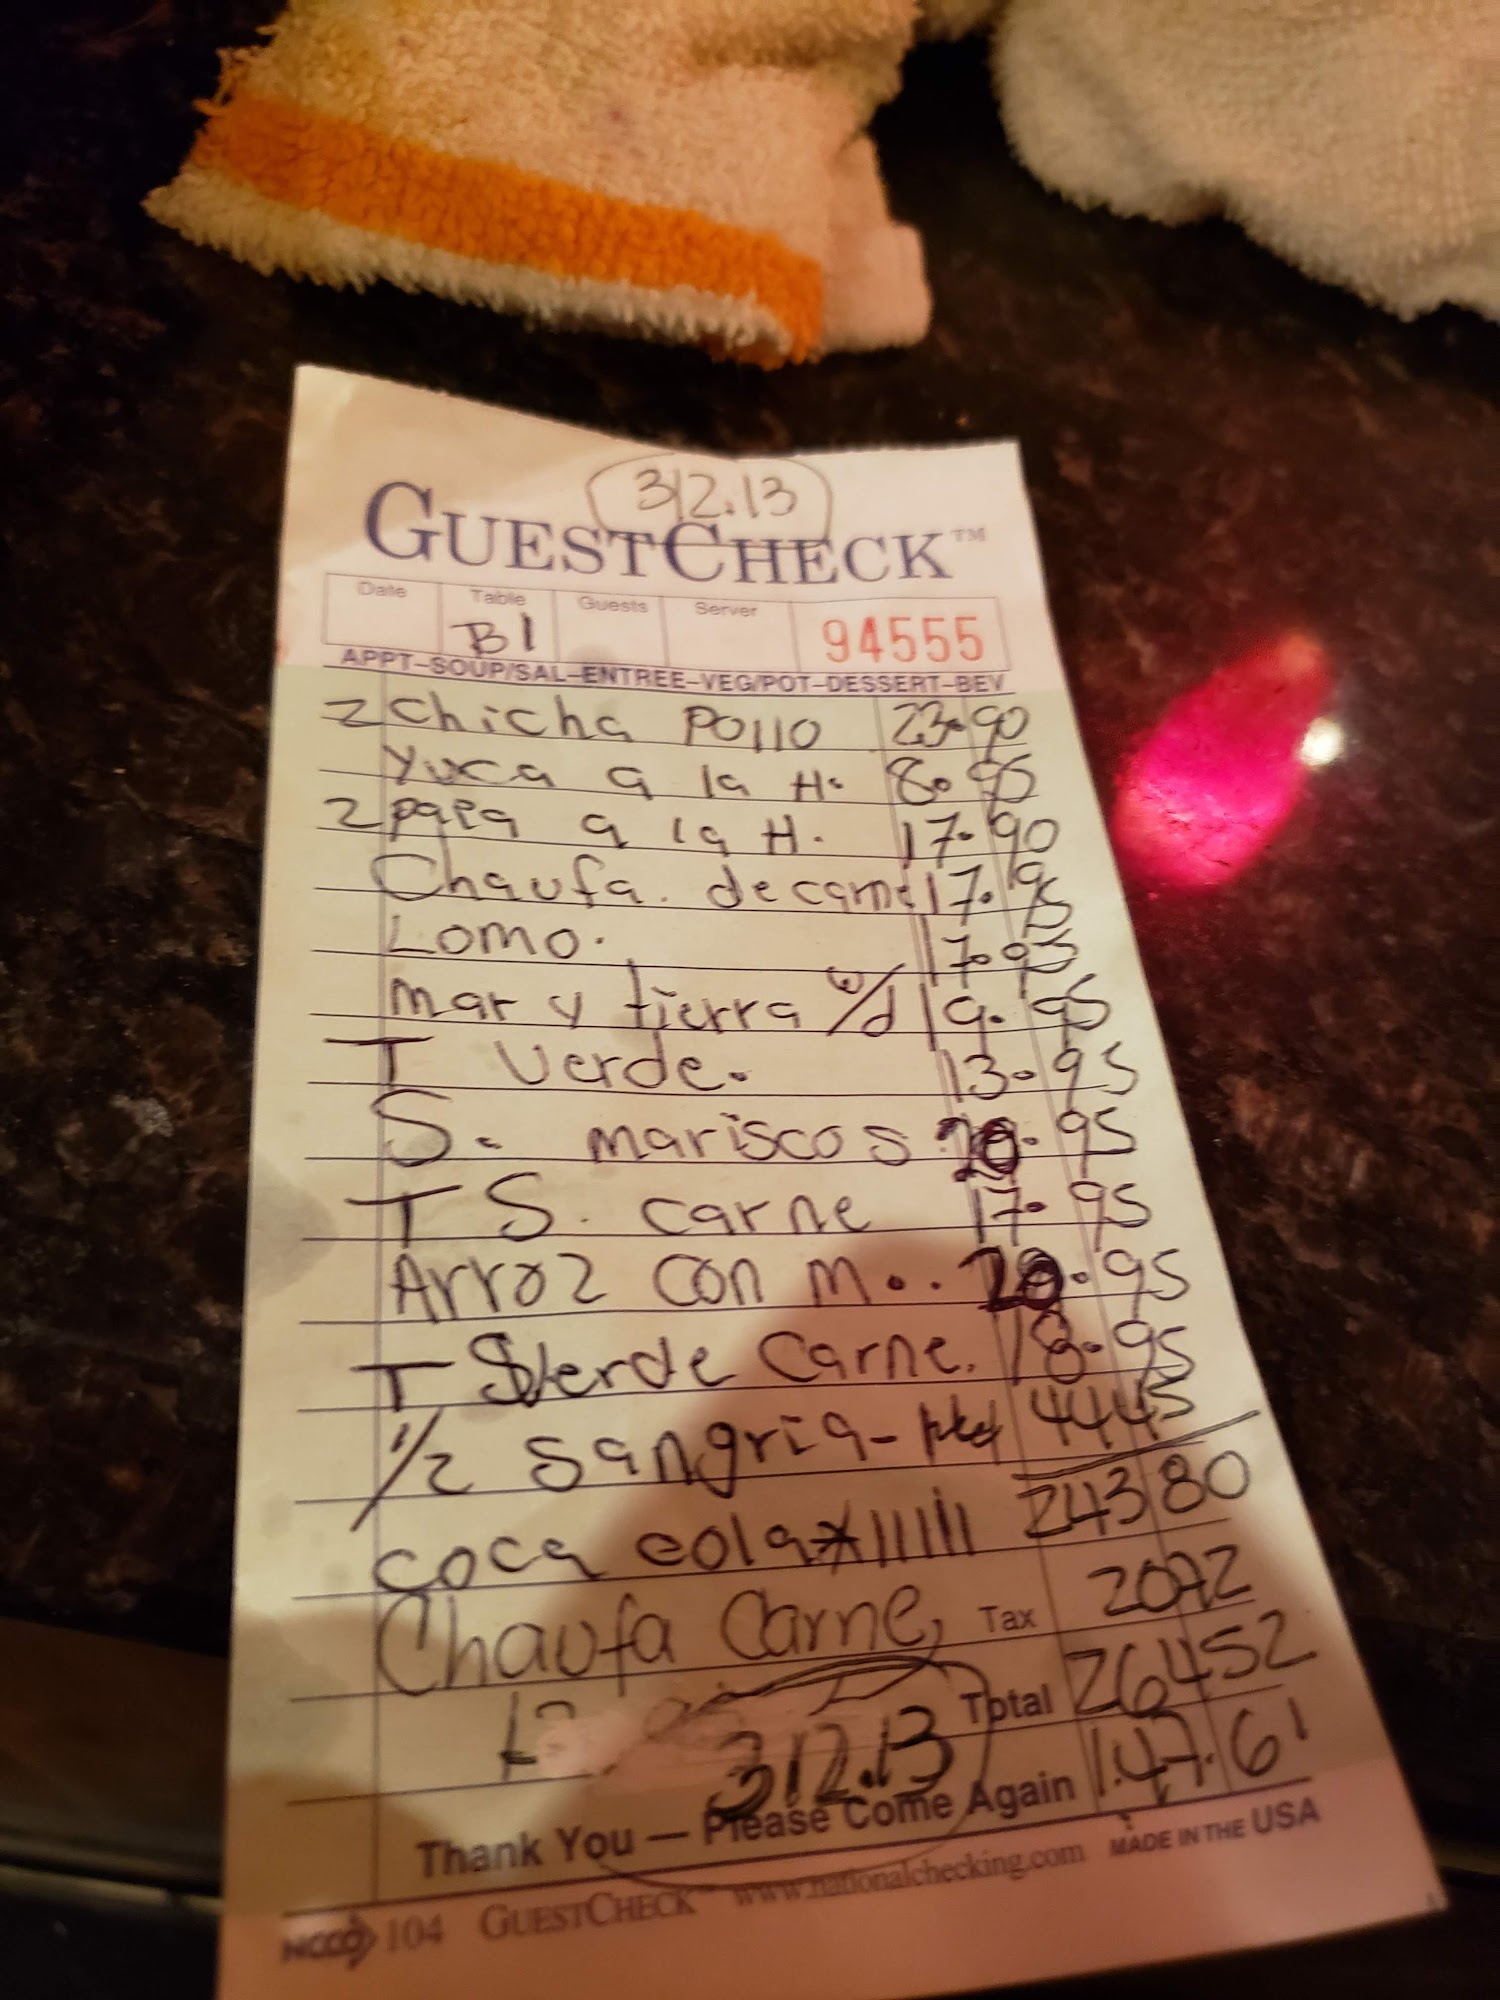 312.13
GUESTCHECK™
Date Table Guests Server
B1 94555
APPT-SOUP/SAL-ENTREE-VEG/POT-DESSERT-BEV
2 chicha Pollo 23.90
Yuca a la H. 8.95
2 papa a la H. 17.90
Chaufa. de carne 17.95
Lomo. 17.95
mar y tierra w/d 19.95
T Verde. 13.95
S. mariscos 20.95
T S. carne 17.95
Arroz con m.. 20.95
T S Verde Carne. 18.95
1/2 sangria- 44 45
coca cola 243 80
Chaufa Carne, Tax 20 72
Total 264 52
312.13 147.61
Thank You — Please Come Again
NCCO 104 GUESTCHECK™ www.nationalchecking.com MADE IN THE USA